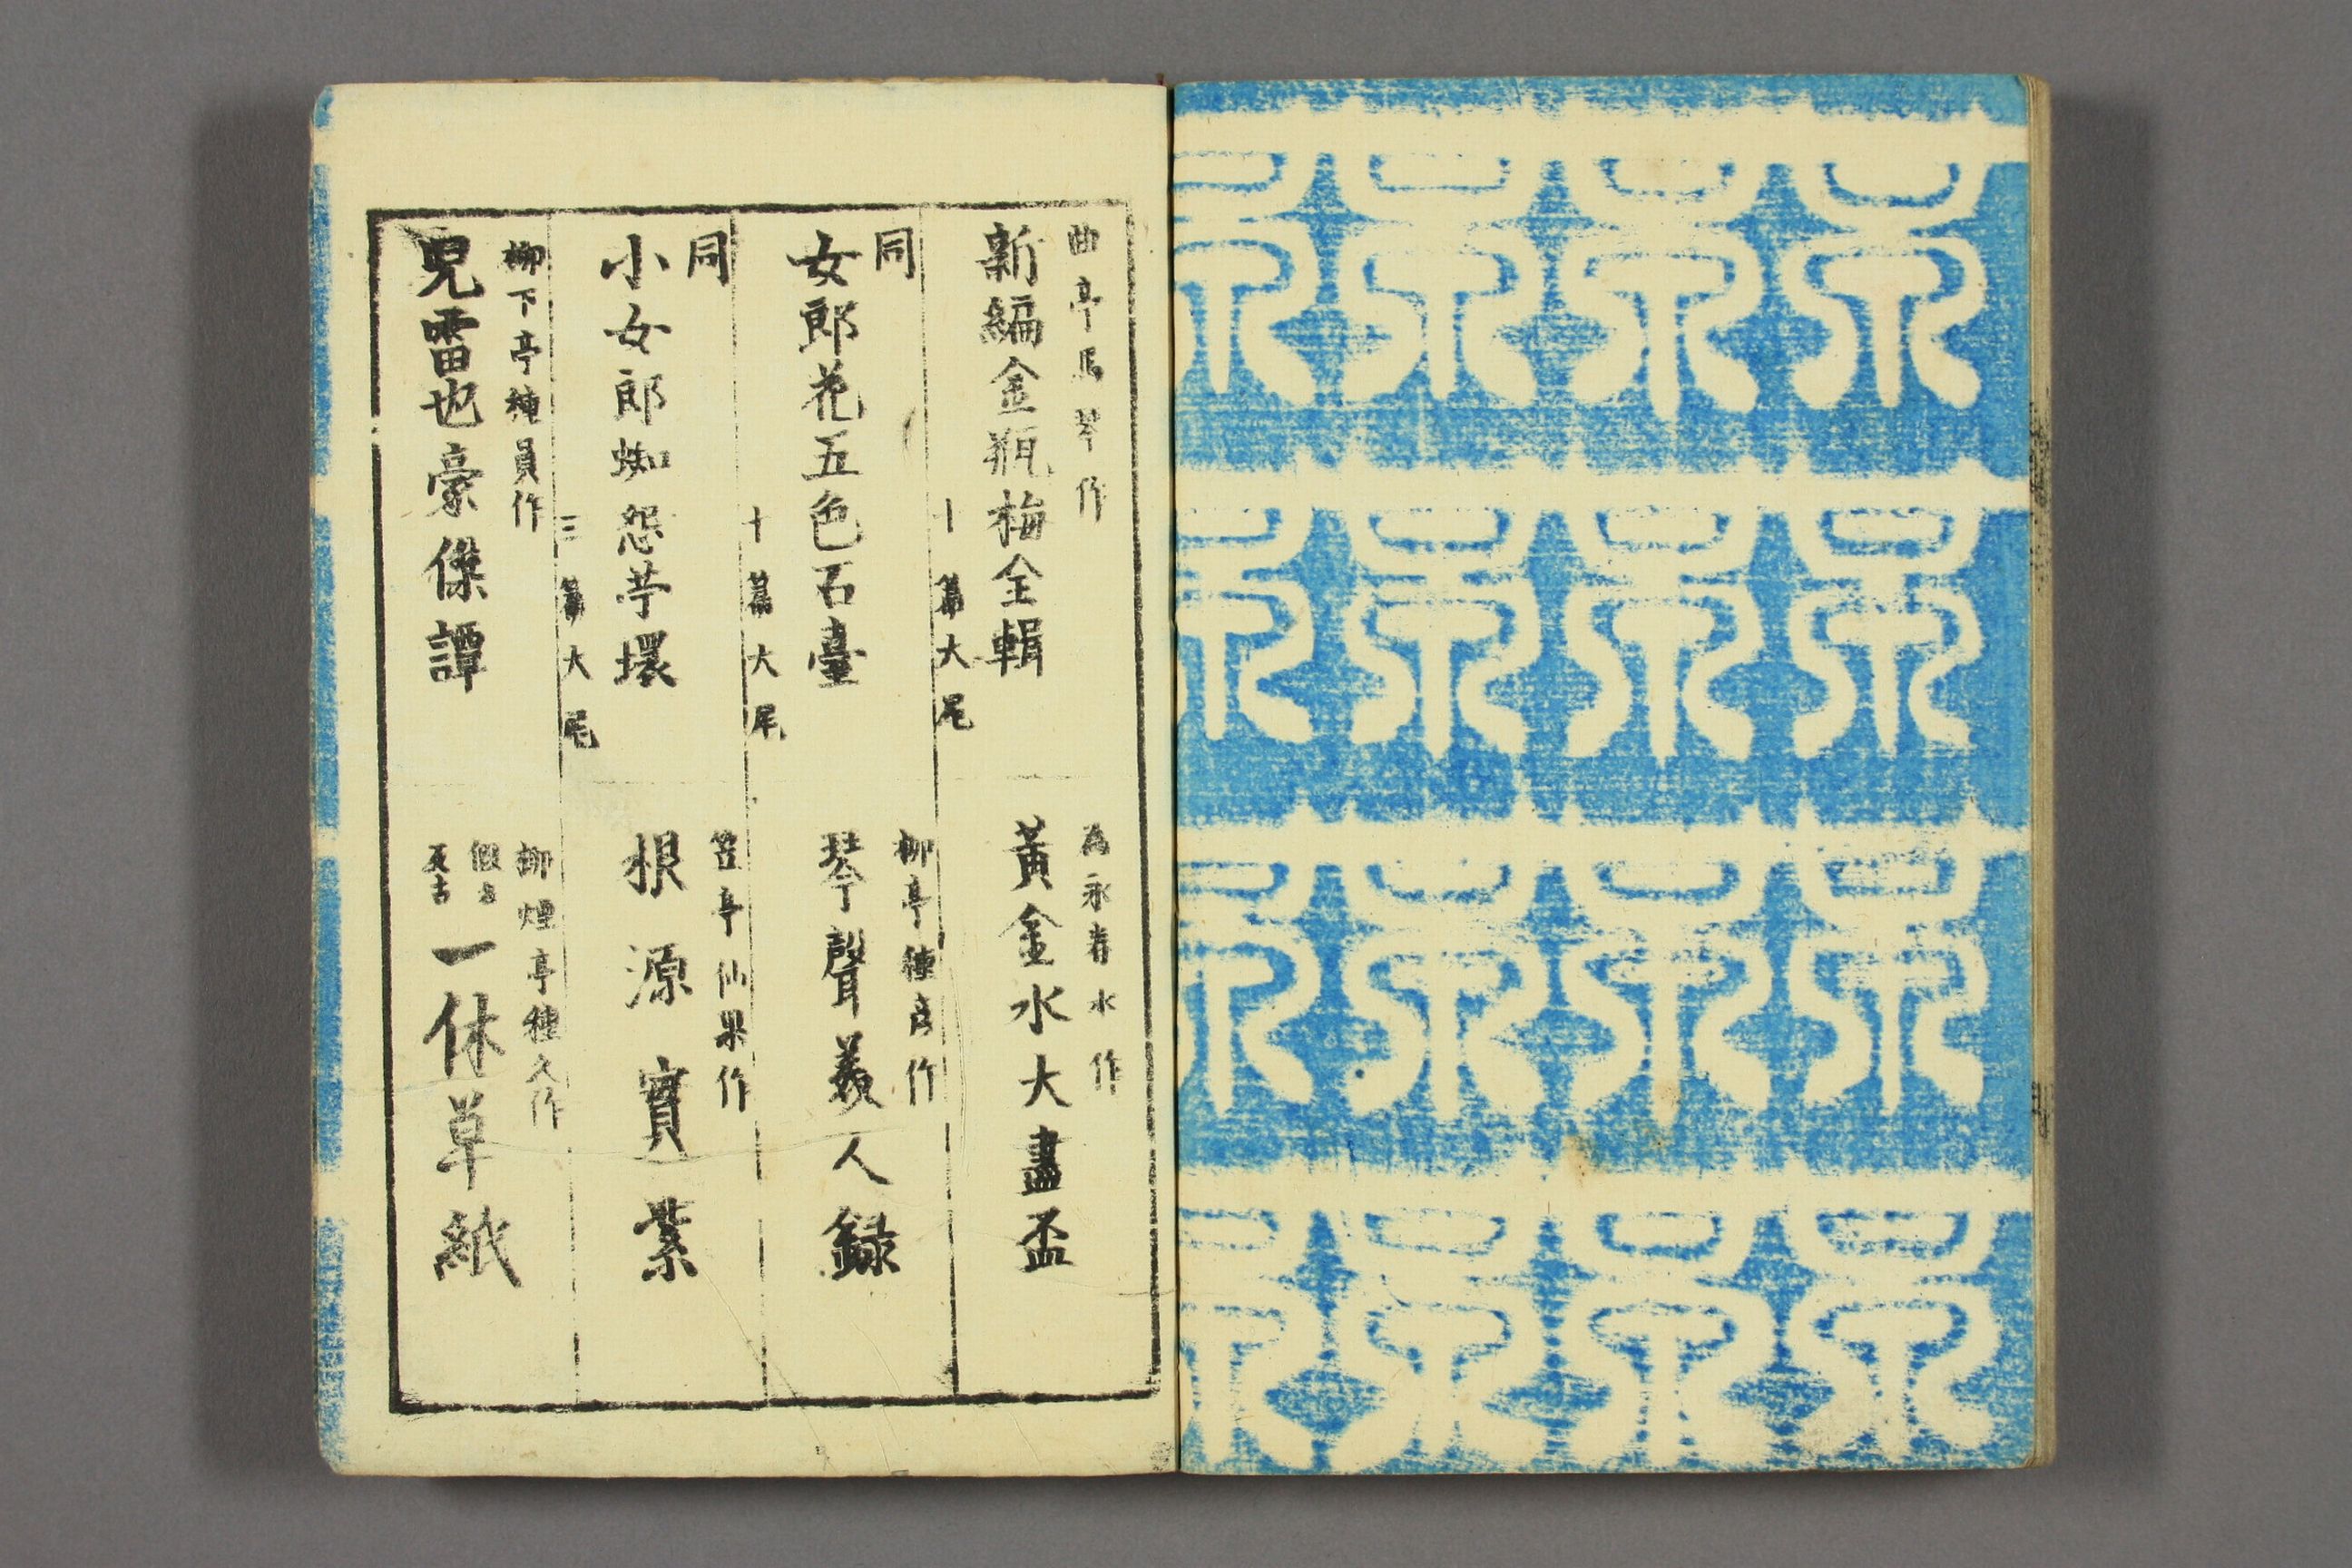 曲亭馬琴作
新編金瓶梅全輯
十篇大尾
同
女郎花五色石臺
十篇大尾
同
小女郎蜘怨苧環
三篇大尾
柳下亭種員作
児雷也豪傑譚
為永春水作
黃金水大盡盃
柳亭種彦作
琴聲美人録
笠亭仙果作
根源實紫
柳煙亭種久作
假名
反古
一休草紙